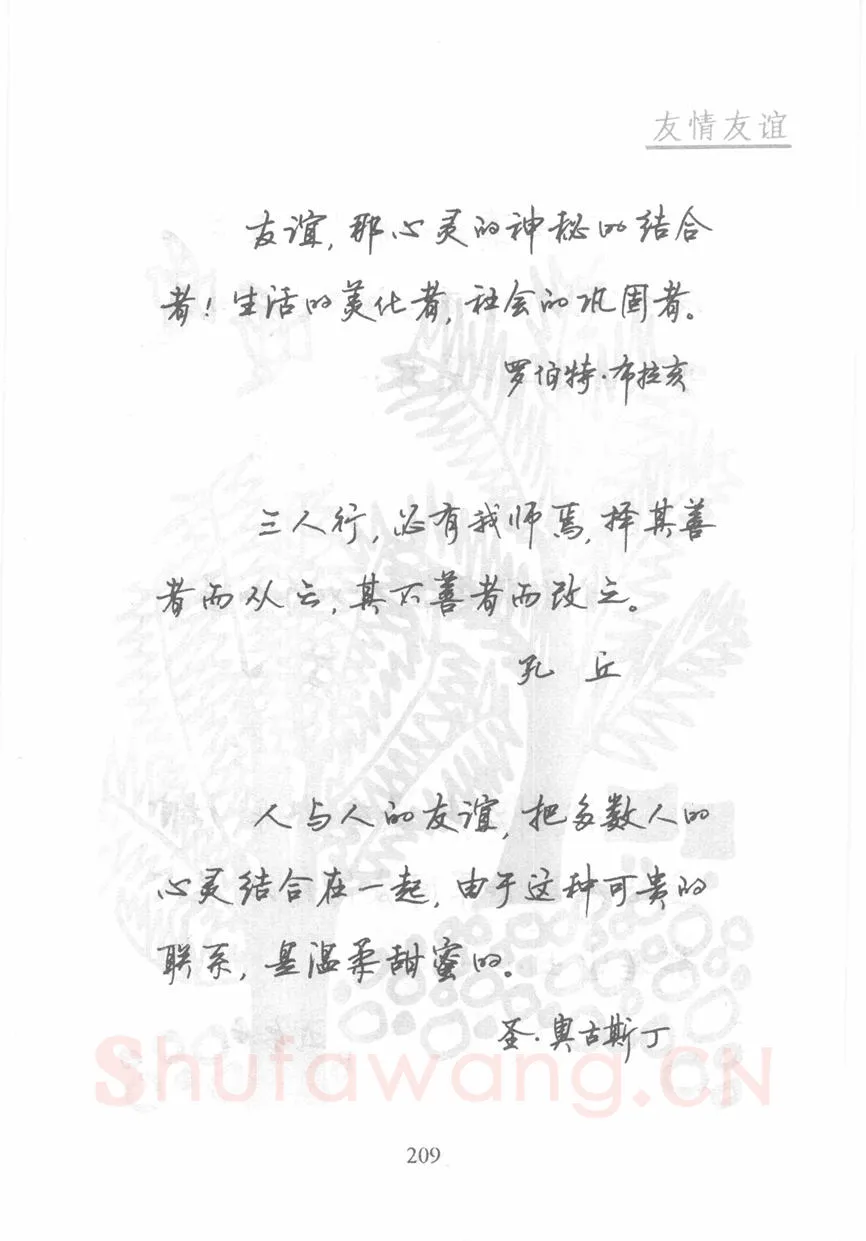 友情友谊
友谊,那心灵的神秘的结合
者!生活的美化者,社会的巩固者。
罗伯特·布拉亥
三人行,必有我师焉,择其善
者而从之,其不善者而改之。
孔 丘
人与人的友谊,把多数人的
心灵结合在一起,由于这种可贵的
联系,是温柔甜蜜的。
圣·奥古斯丁
Shufawang.CN
209